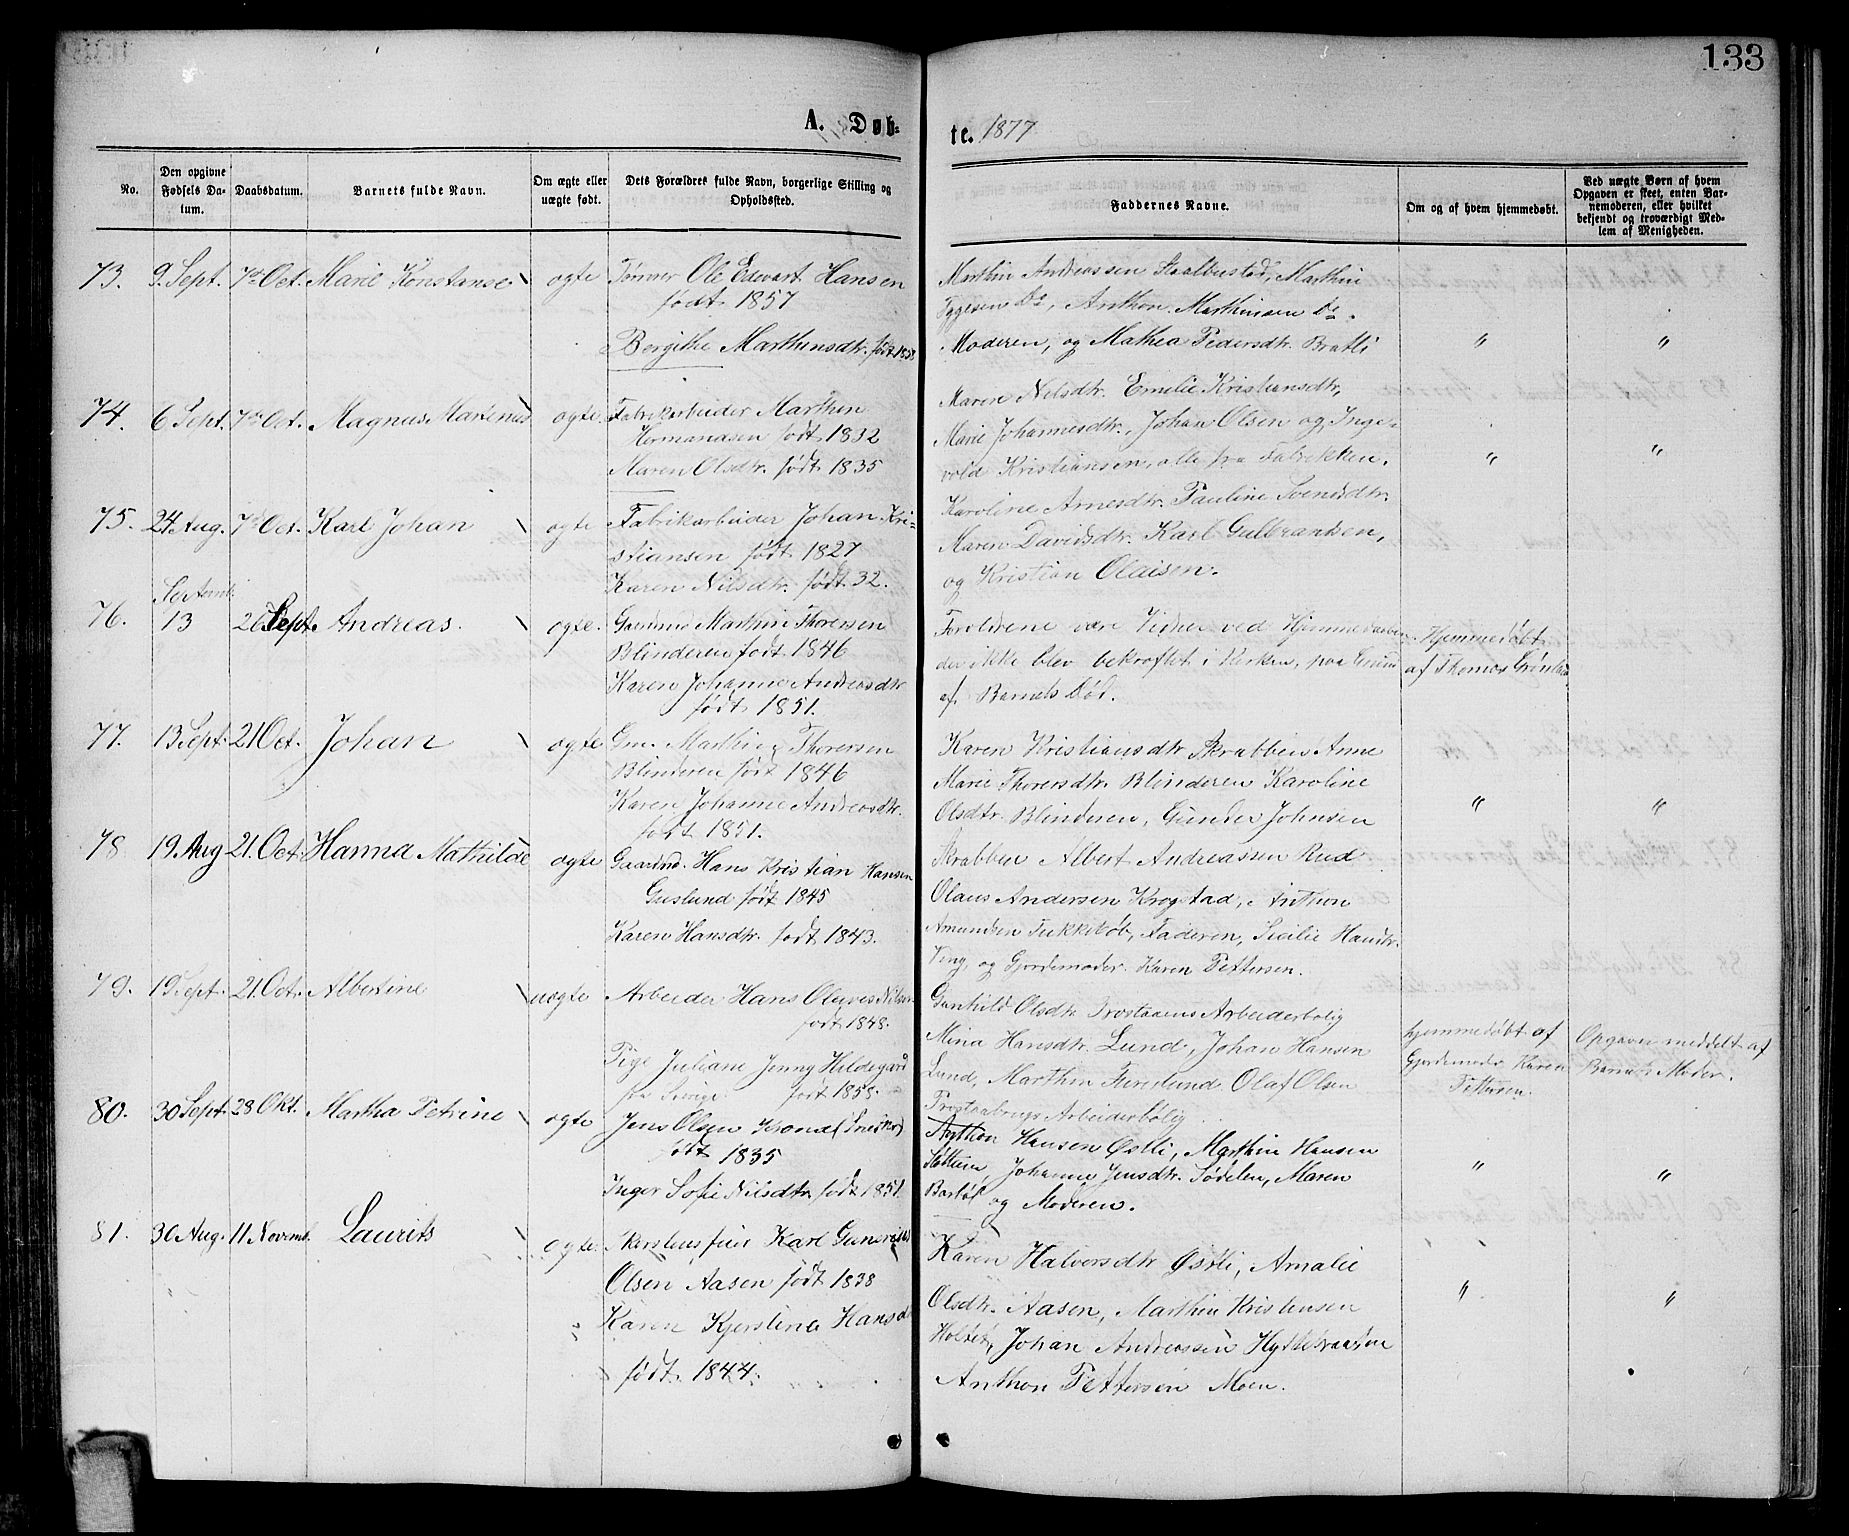 133
A. Døb-
te. 1877
No.
Den opgivne Fødsels Da-tum.
Daabsdatum.
Barnets fulde Navn.
Om ægte eller uægte født.
Dets Forældres fulde Navn, borgerlige Stilling og Opholdssted.
Faddernes Navne.
Om og af hvem hjemmedøbt.
Ved uægte Børn af hvem Opgaven er skeet, enten Bar-nemoderen, eller hvilket bekjendt og troværdigt Med-lem af Menigheden.
73. 9. Sept. 7de Oct. Marie Konstanse ogte Tømrer Ole Edevart Hansen
født 1857
Bergithe Marthinsdtr. født 1858
Marthin Andreassen Staalbustad, Marthin
Tygesen Do, Anthon Marthinsen Do.
Moderen, og Mathea Pedersdtr. Bratli " "
74. 6 Sept. 7de Oct. Magnus Martenus ogte. Fabrikarbeider Marthin
Hermanasen født 1832
Maren Olsdtr. født 1835
Maren Nilsdtr. Emelie Kristiansdtr,
Marie Johannesdtr., Johan Olsen og Inge-
vold Kristiansen, alle fra Fabrikken. " "
75. 24 Aug. 7de Oct. Karl Johan ogte Fabrikarbeider Johan Kri-
stiansen født 1827
Karen Nilsdtr. født 32.
Karoline Arnesdtr. Pauline Svensdtr.
Maren Davidsdtr. Karl Gulbransen,
og Kristian Olaisen.
76. Septemb. 13 26 Sept. Andreas. ogte. Gaardmd Marthin Thoresen
Blinderen født 1846
Karen Johanne Andreasdtr
født 1851.
Foreldrene vare Vidner ved Hjemmedaaben.
der ikke blev bekræftet i Kirken, paa Grund
af Barnets Død.
Hjemmedøbt
af Thomas
77. 13 Sept. 21 Oct. Johan ogte Gm. Marthin Thoresen
Blinderen født 1846
Karen Johanne Andreasdtr.
født 1851.
Karen Kristiansdtr Skrabben Anne
Marie Thoresdtr. Blinderen Karoline
Olsdtr. Blinderen, Gunder Johnsen
Skrabben Albert Andreassen Rud. " "
78 19. Aug 21. Oct. Hanna Mathilde ogte Gaardmd. Hans Kristian Hansen
Guslund født 1845
Karen Hansdtr. født 1843.
Olaus Andersen Krogstad, Anthon
Amundsen Fukkebøb, Faderen, Sicilie Hansdtr.
Veng, og Gjordemoder. Karen Pettersen.
79. 19 Sept. 21. Oct. Albertine uogte Arbeider Hans Oluves Nilsen
født 1848.
Pige Juliane Jenny Hildegard
fra Sverige. født 1858.
Gunhild Olsdtr. Prostaaens Arbeiderbolig
Mina Hansdtr. Lund, Johan Hansen
Lund, Marthin Furulund Olaf Olsen
Prostaabrugs Arbeiderbolig
hjemmedøbt af
Gjordemoder Karen
Pettersen.
Opgaven meddelt af
Barnets Moder.
80. 30 Sept. 28 Okt. Martha Petrine ogte Jens Olsen (Snedker)
født 1835
Inger Sofie Nilsdtr. født 1851.
Anthon Hansen Østli, Marthin Hansen
Johanne Jensdtr. Sødelen, Maren
og Moderen. " "
81. 30 Aug. 11 Novemb. Laurits ogte. Karl Gunerius
Olsen Aasen født 1838
Karen Kjerstina Hansd
født. 1844.
Karen Halvorsdtr Østli, Amalie
Olsdtr. Aasen, Marthin Kristensen
Holtet, Johan Andreassen Hyttebraaten
Anthon Pettersen Moen. " "